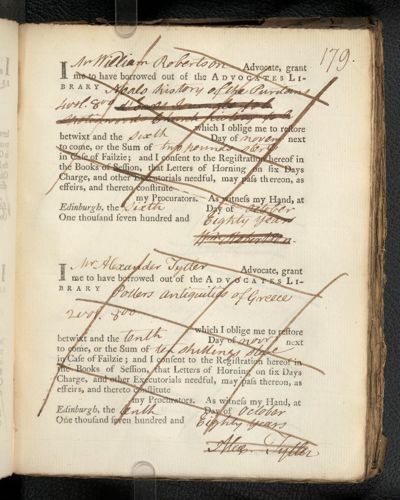 179.
I Mr William Robertson Advocate, grant
me to have borrowed out of the ADVOCATES LI-
BRARY Neals history of the Puritans
4 vol. 8vo
which I oblige me to restore
betwixt and the sixth Day of novem next
to come, or the Sum of two pounds ster
in Case of Failzie; and I consent to the Registration hereof in
the Books of Session, that Letters of Horning on six Days
Charge, and other Executorials needful, may pass thereon, as
effeirs, and thereto constitute
my Procurators. As witness my Hand, at
Edinburgh, the Sixth Day of October
One thousand seven hundred and Eighty years
I Mr Alexander Tytler Advocate, grant
me to have borrowed out of the ADVOCATES LI-
BRARY Potters antiquities of Greece
2 vol. 8vo
which I oblige me to restore
betwixt and the tenth Day of novr next
to come, or the Sum of ten shillings ster
in Case of Failzie; and I consent to the Registration hereof in
the Books of Session, that Letters of Horning on six Days
Charge, and other Executorials needful, may pass thereon, as
effeirs, and thereto constitute
my Procurators. As witness my Hand, at
Edinburgh, the tenth Day of October
One thousand seven hundred and Eighty years
Alex. Tytler